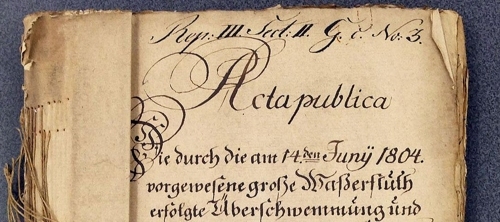 Rep: III Sect: II. G. c. No: 3.
Acta publica
Die durch die am 14.den Junÿ 1804.
vorgewesene große Waßerfluth
erfolgte Überschwemmung und